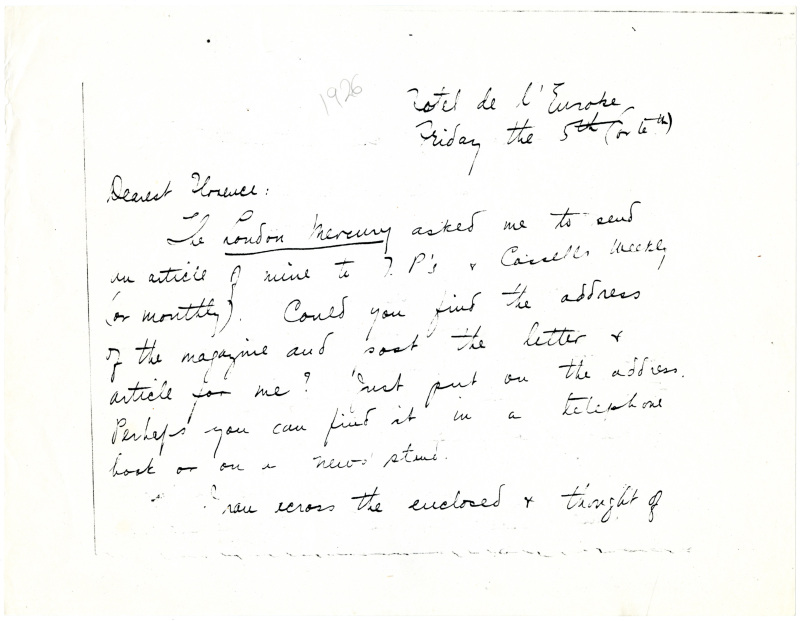 1926
Hotel de l'Europe
Friday the 5th (or 6th)
Dearest Florence:
The London Mercury asked me to send
an article of mine to T. P's & Cassells Weekly
(or monthly). Could you find the address
of the magazine and post the letter &
article for me? Just put on the address.
Perhaps you can find it in a telephone
book or on a news stand.
I ran across the enclosed & thought of